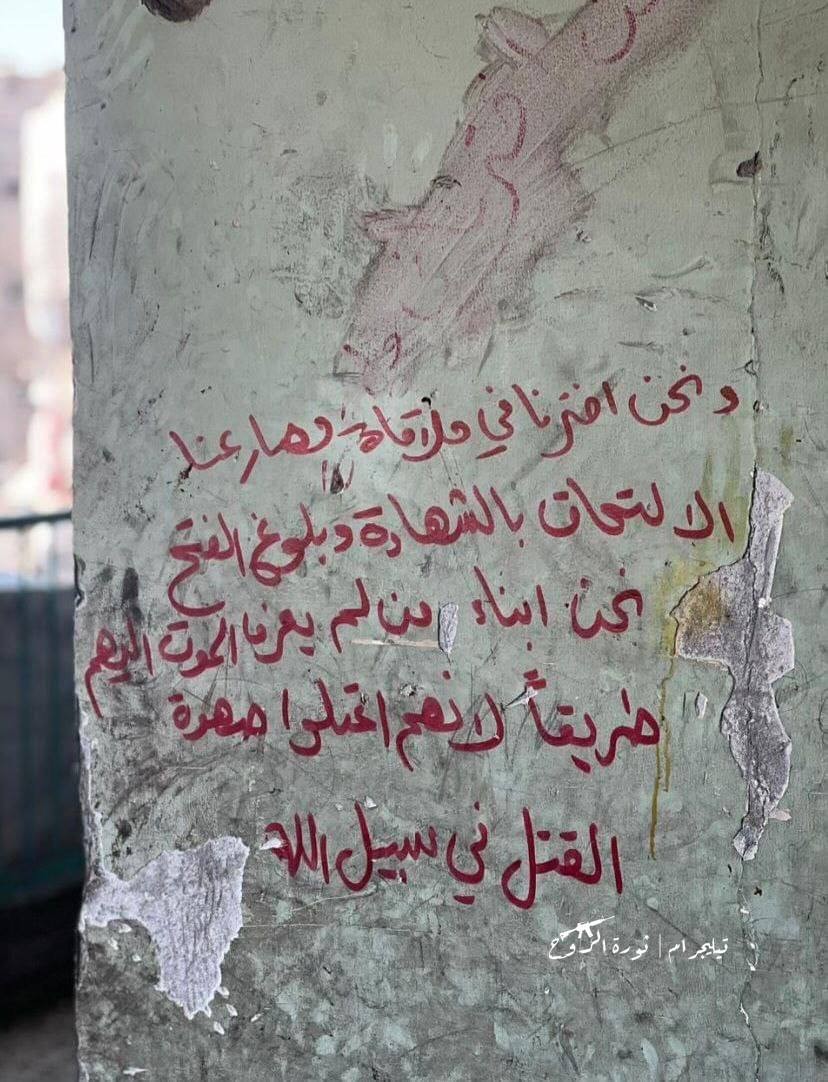 ونحن اخترنا في ملاقاة مصارعنا
الالتحاق بالشهادة وبلوغ الفتح
نحن ابناء من لم يعرف الموت اليهم
طريقاً لانهم امتلوا صهوة
القتل في سبيل الله
تيليجرام | ثورة الروح